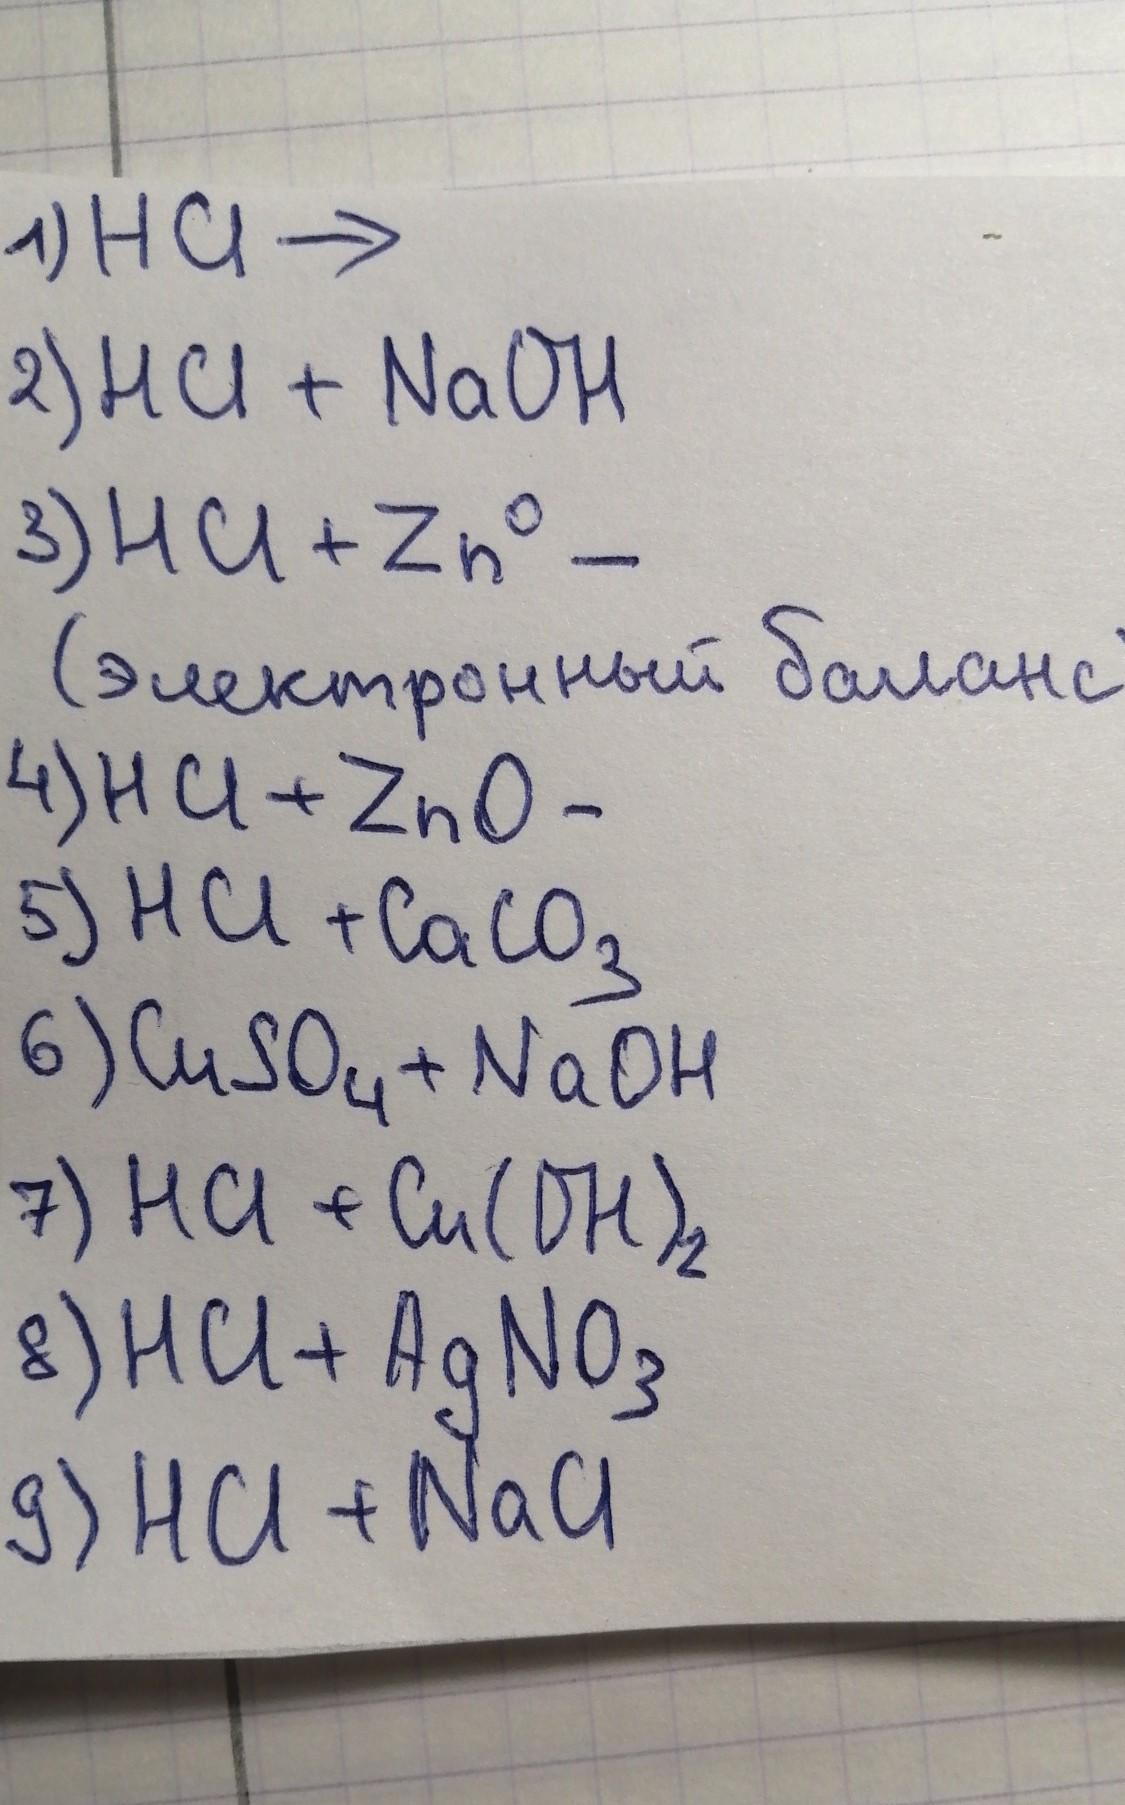 1) HCl →
2) HCl + NaOH
3) HCl + Zn⁰ —
(электронный баланс)
4) HCl + ZnO -
5) HCl + CaCO₃
6) CuSO₄ + NaOH
7) HCl + Cu(OH)₂
8) HCl + AgNO₃
9) HCl + NaCl